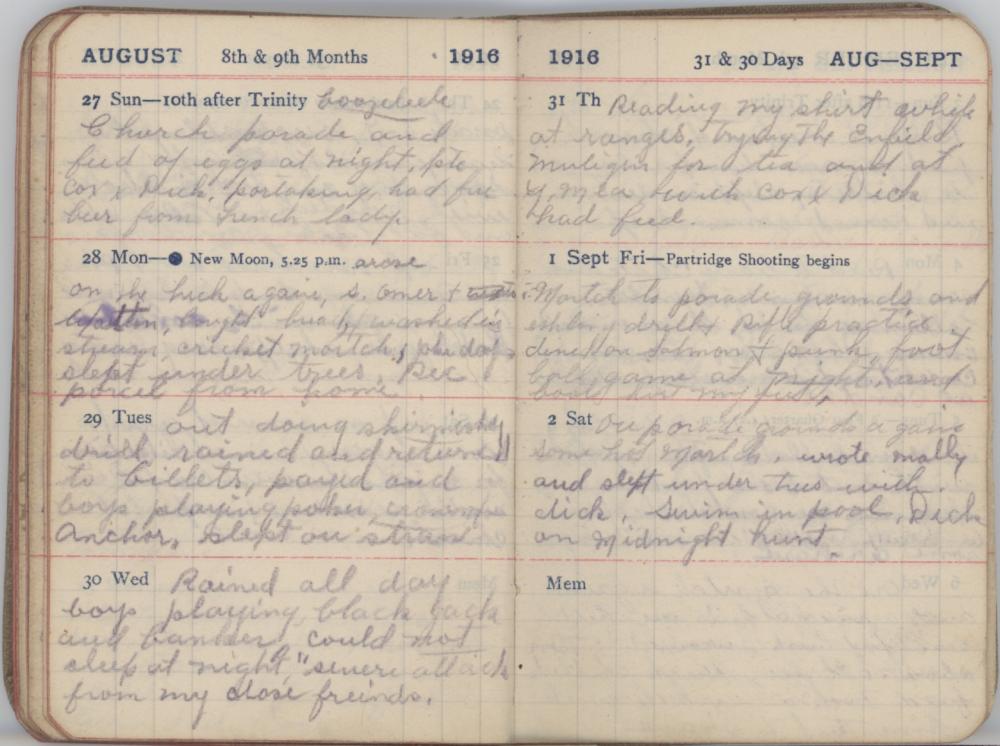 AUGUST 8th & 9th Months 1916
27 Sun—10th after Trinity
Church parade and
feed of eggs at night, pte
Cox & Dick, partaking, had
beer from French lady.
28 Mon— New Moon, 5.25 p.m. arose
on the hick again, s. omer +
bought washed in
stream, cricket match,
slept under trees, Rec
parcel from home
29 Tues out doing skirmish
drill rained and return
to billets, payed and
boys playing poker, crown
Anchor, slept on straw
30 Wed Rained all day
boys playing black jack
and banker, could not
sleep at night, "severe attack
from my close freinds.
1916 31 & 30 Days AUG—SEPT
31 Th Reading my shirt while
at ranges, trying the Enfield,
Muligin for tea and at
Y.M.C.A with Cox & Dick
had feed.
1 Sept Fri—Partridge Shooting begins
March to parade grounds and
drill & Rifle practice,
dined on Salmon & punk, foot
ball game at night, and
my feet,
2 Sat On parade grounds again
some hot March, wrote mally
and slept under trees with
dick, Swim in pool, Dick
on Midnight hunt.
Mem